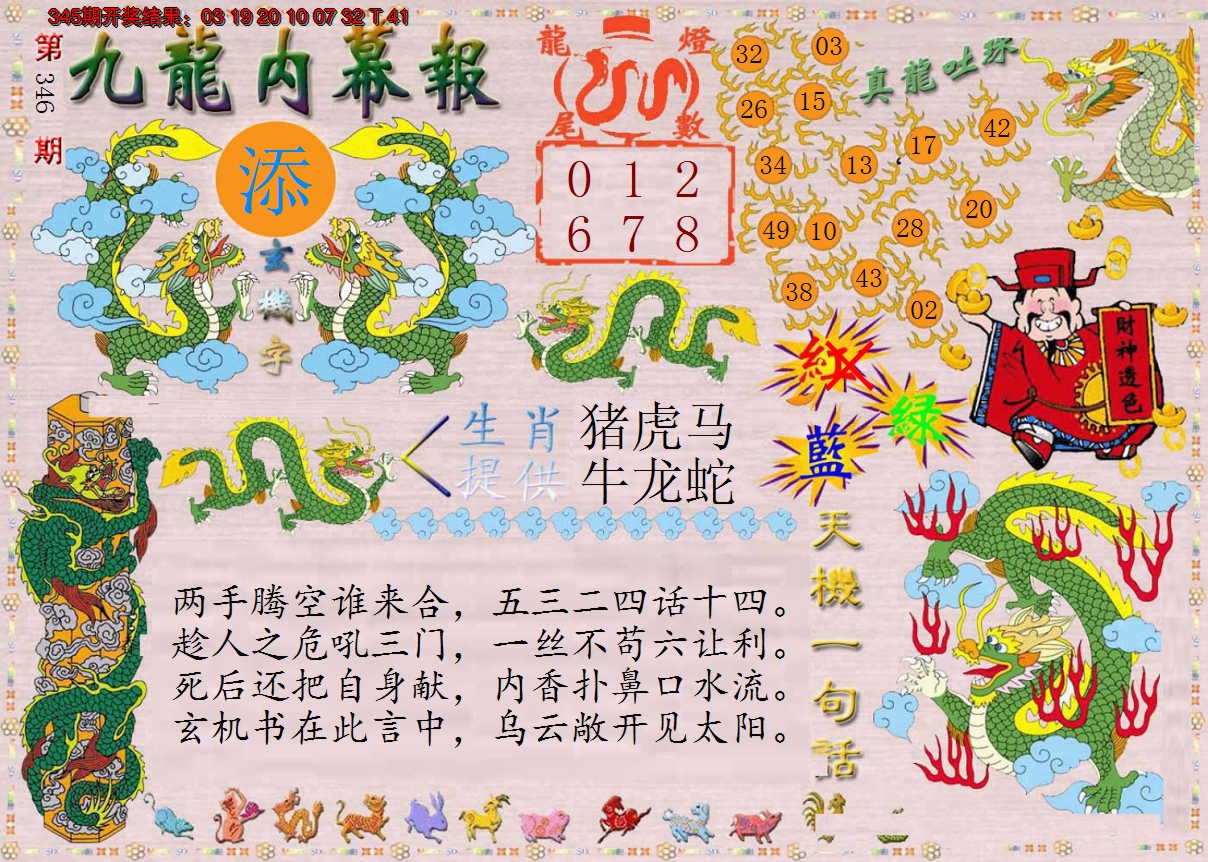 345期开奖结果：03 19 20 10 07 32 T 41
第346期
九龍内幕報
添
玄機字
龍燈尾數
0 1 2
6 7 8
真龍吐珠
32
03
26
15
42
17
34
13
20
28
49
10
43
38
02
財神透色
紅
綠
藍
生肖提供
猪虎马
牛龙蛇
天機一句话
两手腾空谁来合，五三二四话十四。
趁人之危吼三门，一丝不苟六让利。
死后还把自身献，内香扑鼻口水流。
玄机书在此言中，乌云敞开见太阳。